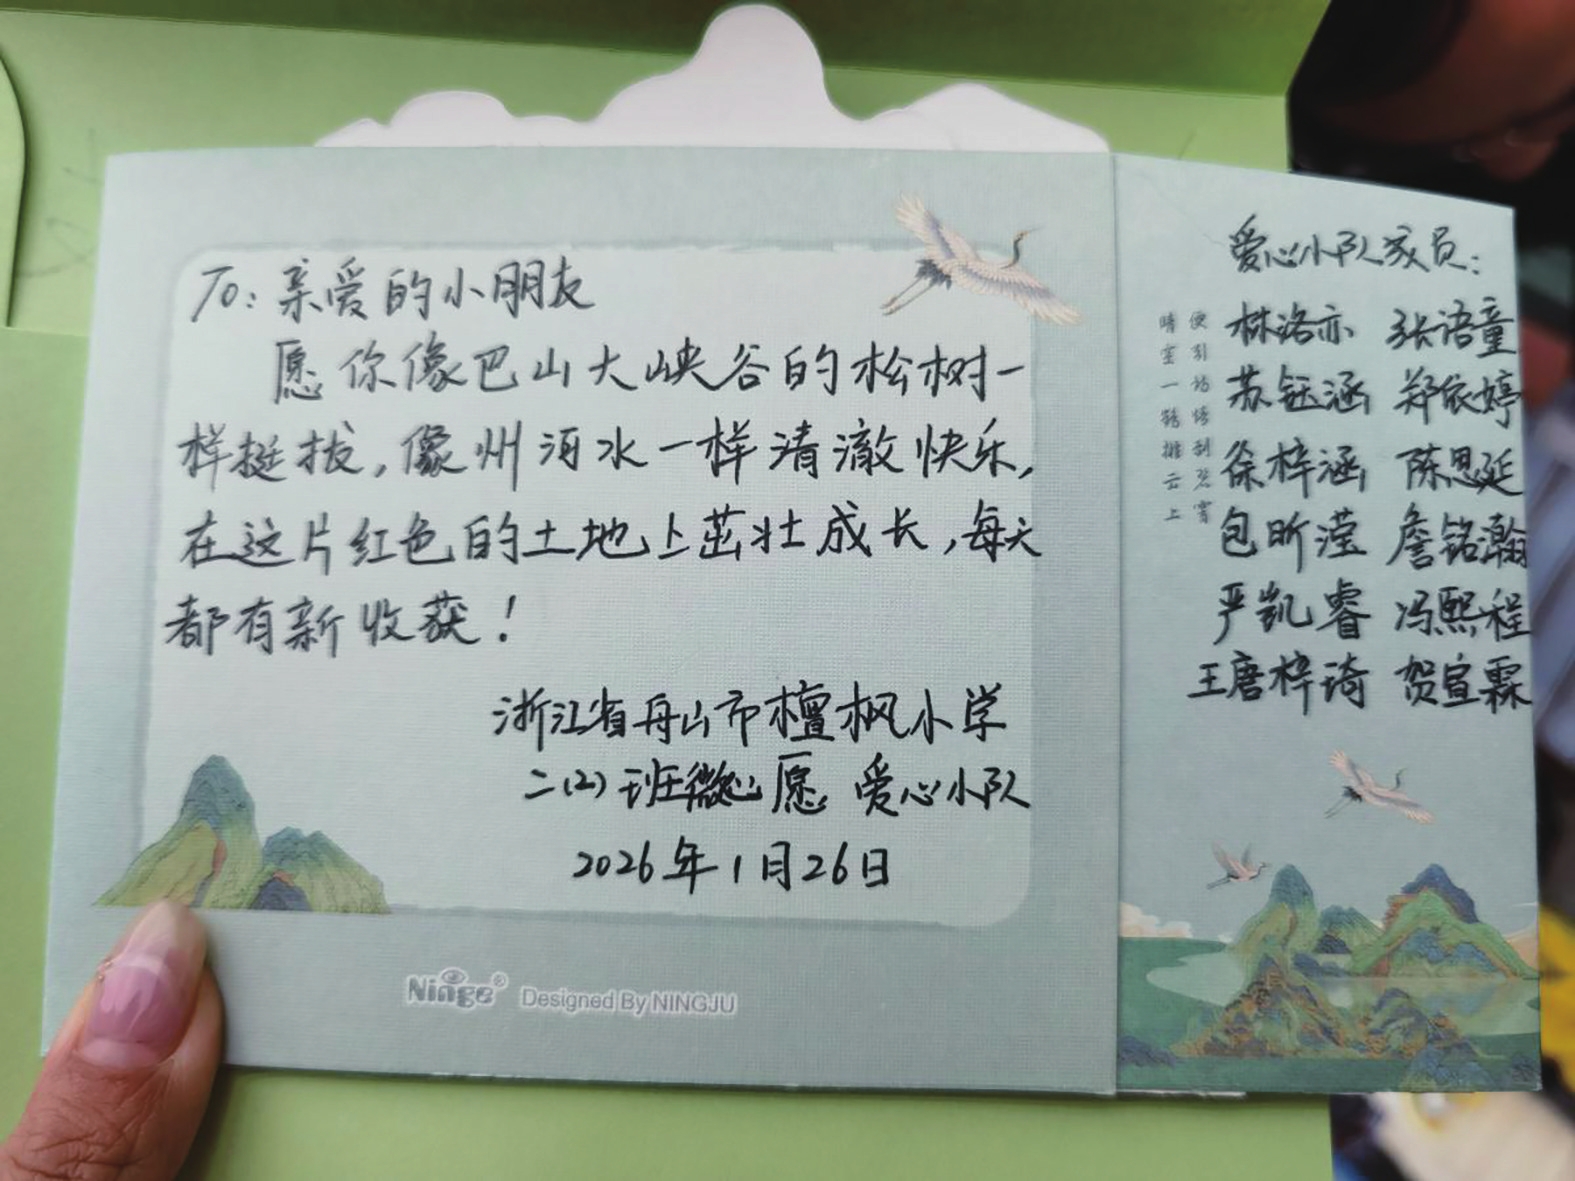 To: 亲爱的小朋友
愿你像巴山大峡谷的松树一
样挺拔,像州河水一样清澈快乐,
在这片红色的土地上茁壮成长,每天
都有新收获!
浙江省舟山市檀枫小学
二(2)班微心愿 爱心小队
2026年1月26日
Ninge® Designed By NINGJU
爱心小队成员:
林洛亦 张语童
苏钰涵 郑依婷
徐梓涵 陈思延
包昕滢 詹铭瀚
严凯睿 冯熙程
王唐梓琦 贺宣霖
晴空一鹤排云上
便引诗情到碧霄